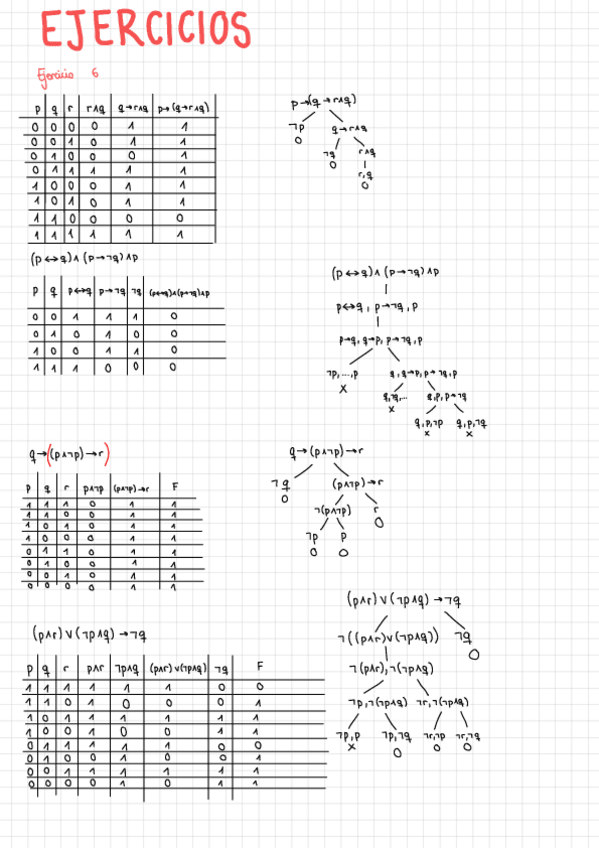 EJERCICIOS
Ejercicio 6
p q r r∧q q→r∧q p→(q→r∧q)
0 0 0 0 1 1
0 0 1 0 1 1
0 1 0 0 0 1
0 1 1 1 1 1
1 0 0 0 1 1
1 0 1 0 1 1
1 1 0 0 0 0
1 1 1 1 1 1
p→(q→r∧q)
¬p q→r∧q
0 ¬q r∧q
0 r,q
0
(p↔q)∧(p→¬q)∧p
p q p↔q p→¬q ¬q (p↔q)∧(p→¬q)∧p
0 0 1 1 1 0
0 1 0 1 0 0
1 0 0 1 1 0
1 1 1 0 0 0
(p↔q)∧(p→¬q)∧p
p↔q, p→¬q, p
p→q, q→p, p→¬q, p
¬p,...,p q, q→p, p→¬q, p
x q,¬q,... q, p, p→¬q
x q,p,¬p q,p,¬q
x x
q→((p∧¬p)→r)
p q r p∧¬p (p∧¬p)→r F
1 1 1 0 1 1
1 1 0 0 1 1
1 0 1 0 1 1
1 0 0 0 1 1
0 1 1 0 1 1
0 1 0 0 1 1
0 0 1 0 1 1
0 0 0 0 1 1
q→(p∧¬p)→r
¬q (p∧¬p)→r
0 ¬(p∧¬p) r
0
¬p p
0 0
(p∧r)∨(¬p∧q)→¬q
p q r p∧r ¬p∧q (p∧r)∨(¬p∧q) ¬q F
1 1 1 1 1 1 0 0
1 1 0 1 0 0 0 1
1 0 1 1 1 1 1 1
1 0 0 1 0 0 1 1
0 1 1 1 1 1 0 0
0 1 0 0 1 1 0 1
0 0 1 1 1 1 1 1
0 0 0 0 1 0 1 1
(p∧r)∨(¬p∧q)→¬q
¬((p∧r)∨(¬p∧q)) ¬q
0
¬(p∧r),¬(¬p∧q)
¬p,¬(¬p∧q) ¬r,¬(¬p∧q)
¬p,p ¬p,¬q ¬r,¬p ¬r,¬q
x 0 0 0